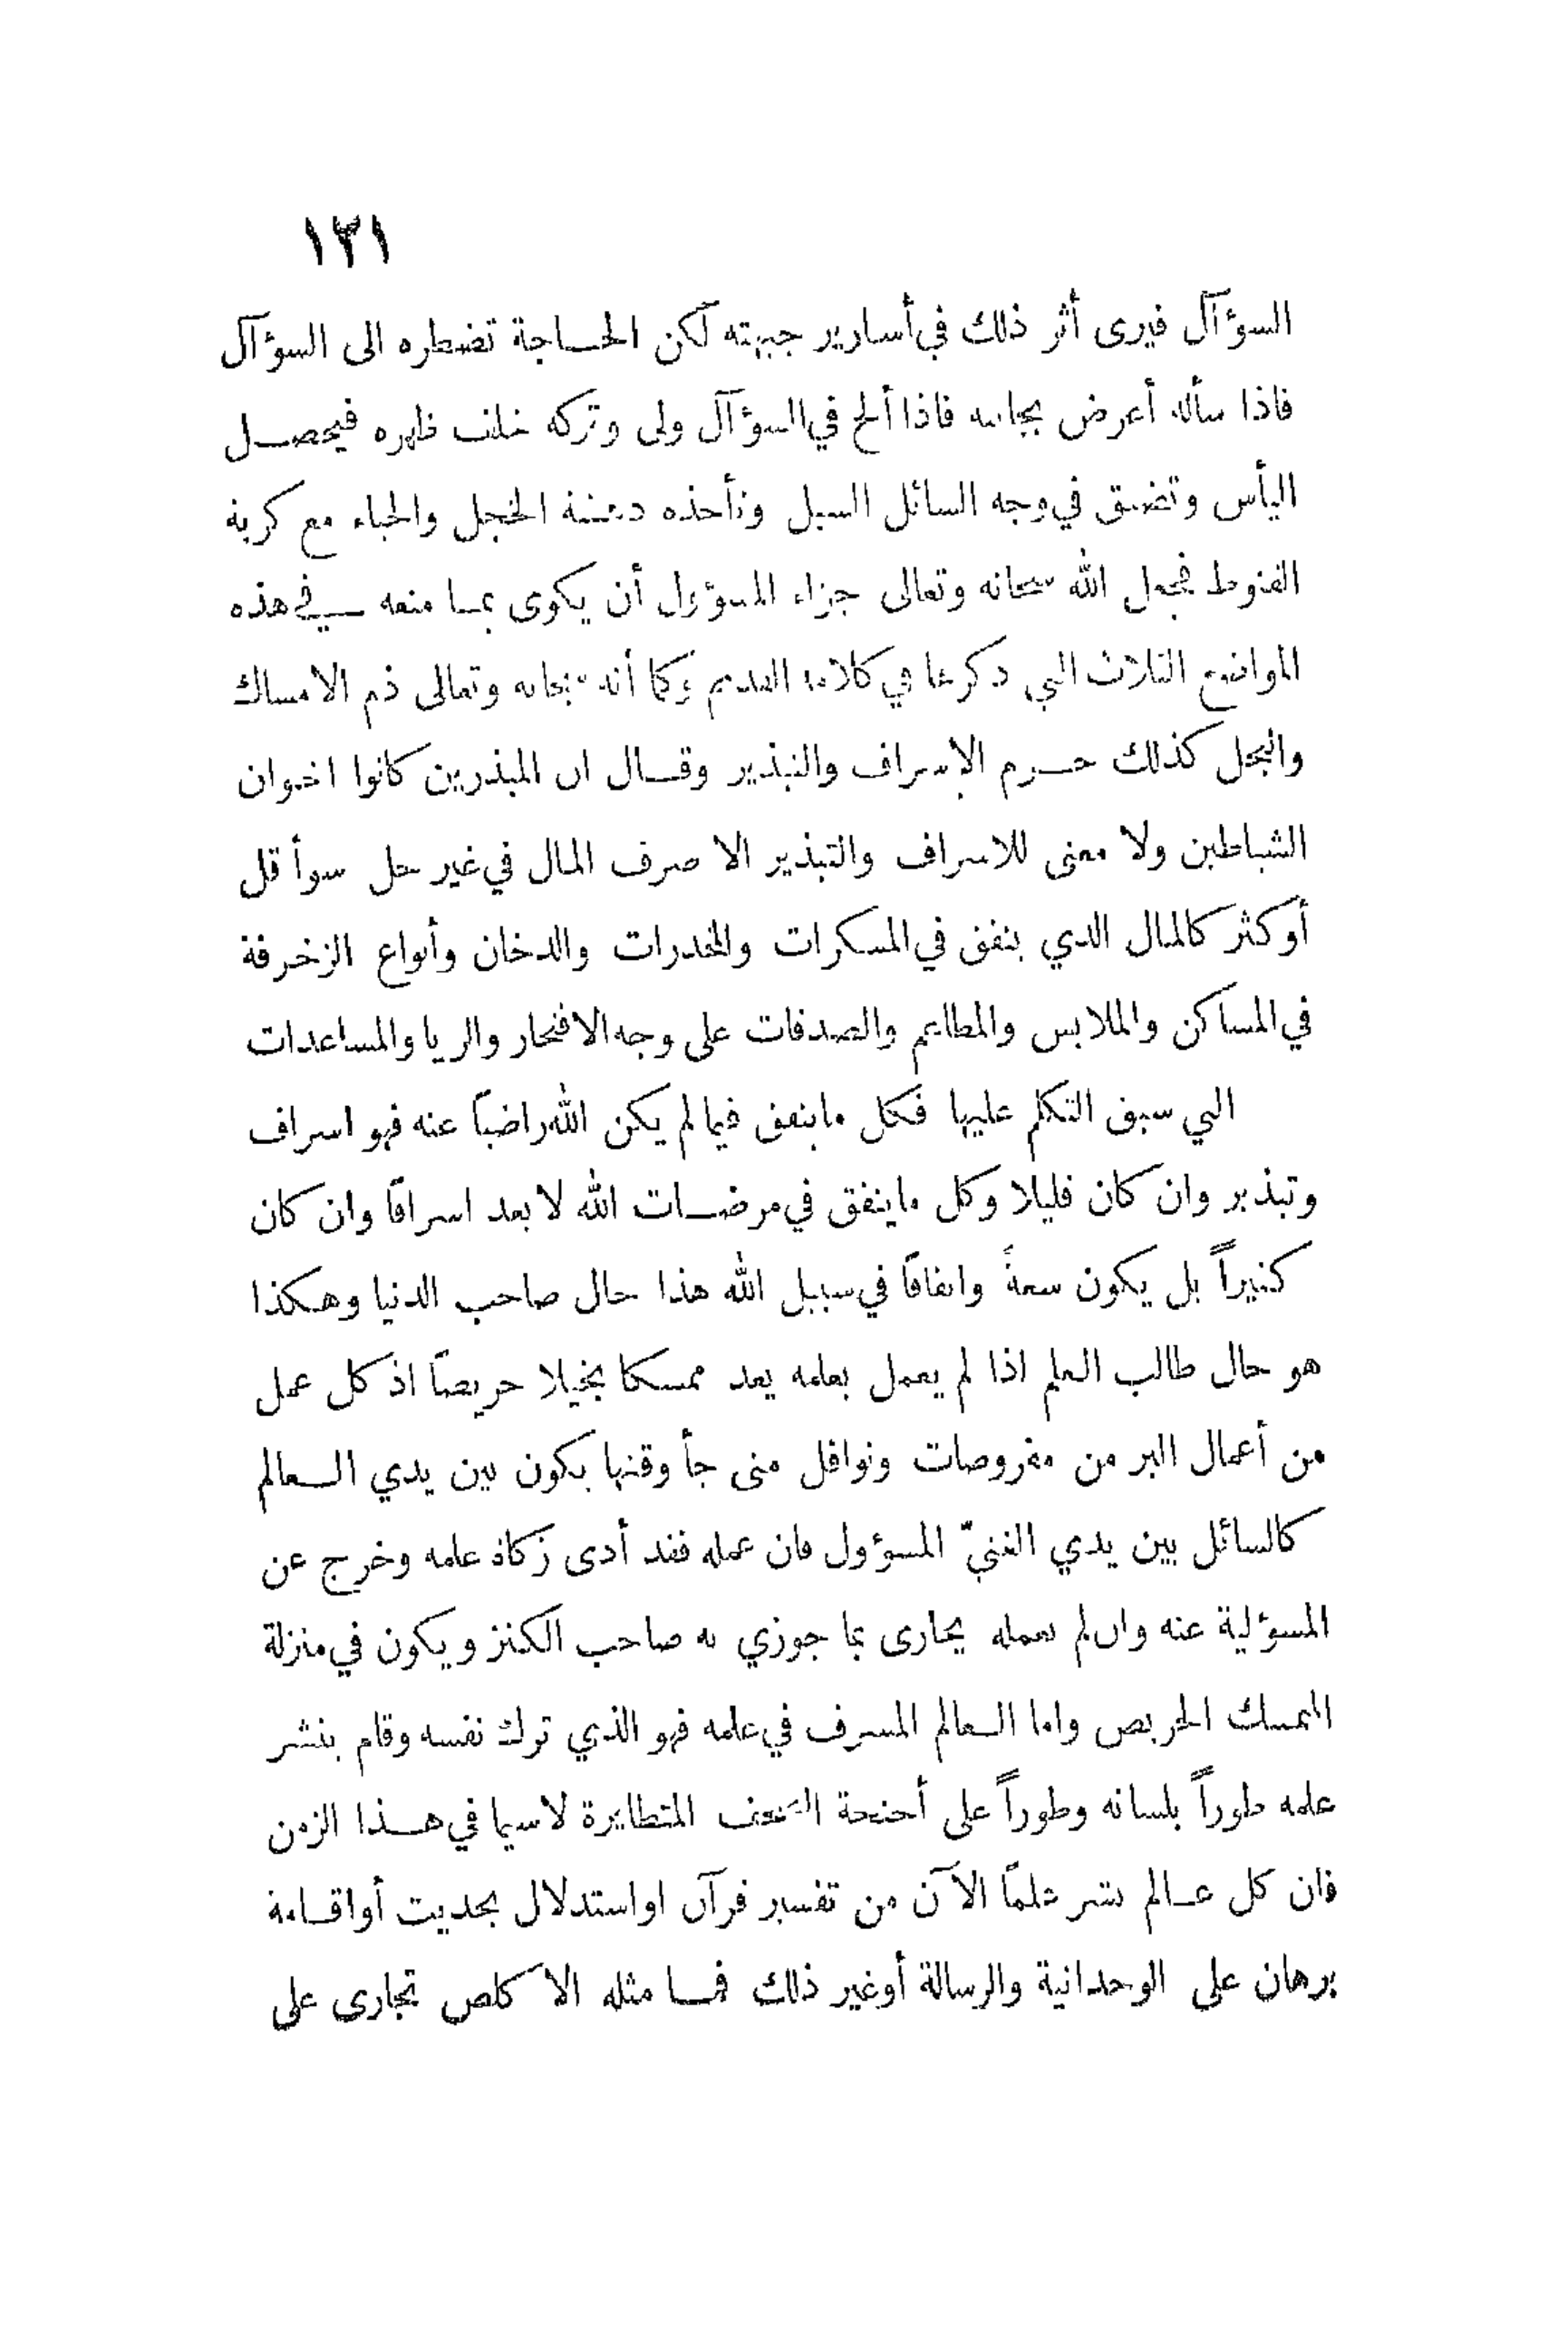 ١٣١
السؤآل فيرى أثر ذلك في أسارير جبهته لكن الحاجة تضطره الى السؤآل
فاذا سأله أعرض بجانبه فاذا ألح في السؤآل ولى وتركه خلف ظهره فيحصل
اليأس وتضيق في وجه السائل السبل وتأخذه دهشة الخجل والحياء مع كربة
القنوط فجعل الله سبحانه وتعالى جزاء المسؤول أن يكوى بما منعه في هذه
المواضع الثلاث التي ذكرها في كلامه القديم وكما أنه سبحانه وتعالى ذم الامساك
والبخل كذلك حرم الاسراف والتبذير وقال ان المبذرين كانوا اخوان
الشياطين ولا معنى للاسراف والتبذير الا صرف المال في غير حل سوأ قل
أو كثر كالمال الذي ينفق في المسكرات والمخدرات والدخان وأنواع الزخرفة
في المساكن والملابس والمطاعم والصدقات على وجه الافتخار والريا والمساعدات
التي سبق التكلم عليها فكل ما ينفق فيما لم يكن الله راضياً عنه فهو اسراف
وتبذير وان كان قليلا وكل ما ينفق في مرضات الله لا يعد اسرافاً وان كان
كثيراً بل يكون سعةً وانفاقاً في سبيل الله هذا حال صاحب الدنيا وهكذا
هو حال طالب العلم اذا لم يعمل بعلمه يعد ممسكا بخيلا حريصاً اذ كل عمل
من أعمال البر من مفروضات ونوافل متى جأ وقتها يكون بين يدي العالم
كالسائل بين يدي الغنيّ المسؤول فان عمله فقد أدى زكاة علمه وخرج عن
المسؤلية عنه وان لم يعمله يجازى بما جوزي به صاحب الكنز ويكون في منزلة
الممسك الحريص واما العالم المسرف في علمه فهو الذي ترك نفسه وقام بنشر
علمه طوراً بلسانه وطوراً على أجنحة الصحف المتطايرة لاسيما في هذا الزمن
فان كل عالم نشر علماً الآن من تفسير قرآن او استدلال بحديث أو اقامة
برهان على الوحدانية والرسالة أو غير ذلك فما مثله الا كلص تجارى على